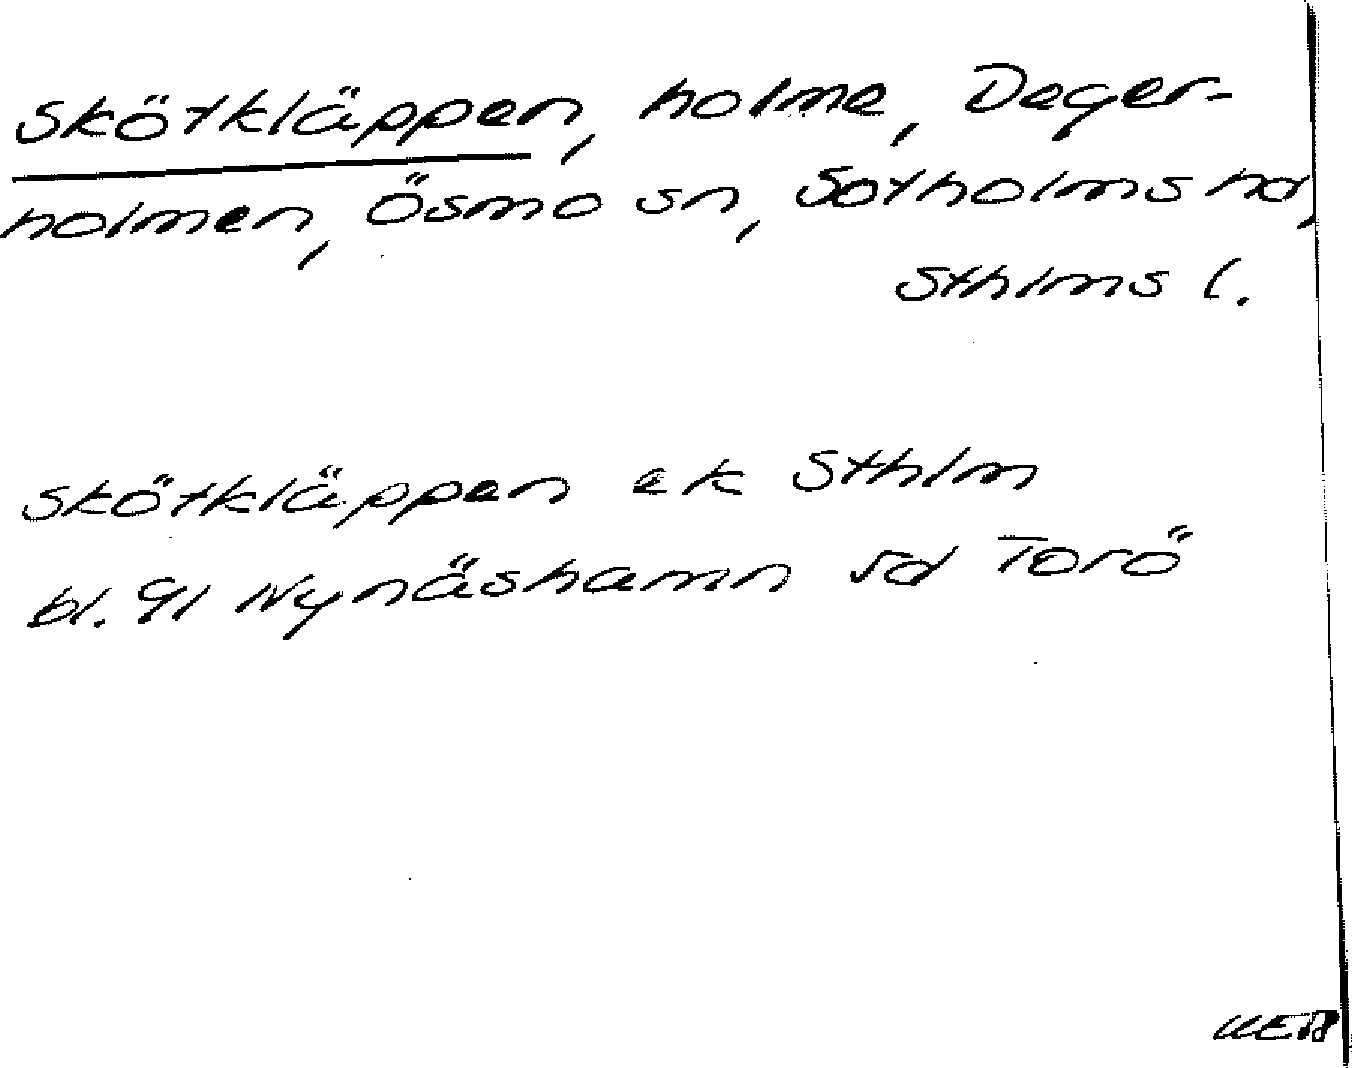 Skötkläppen, holme, Deger-
holmen, Ösmo sn, Sotholms hd,
Sthlms l.
Skötkläppen ek Sthlm
bl. 91 Nynäshamn vd Torö